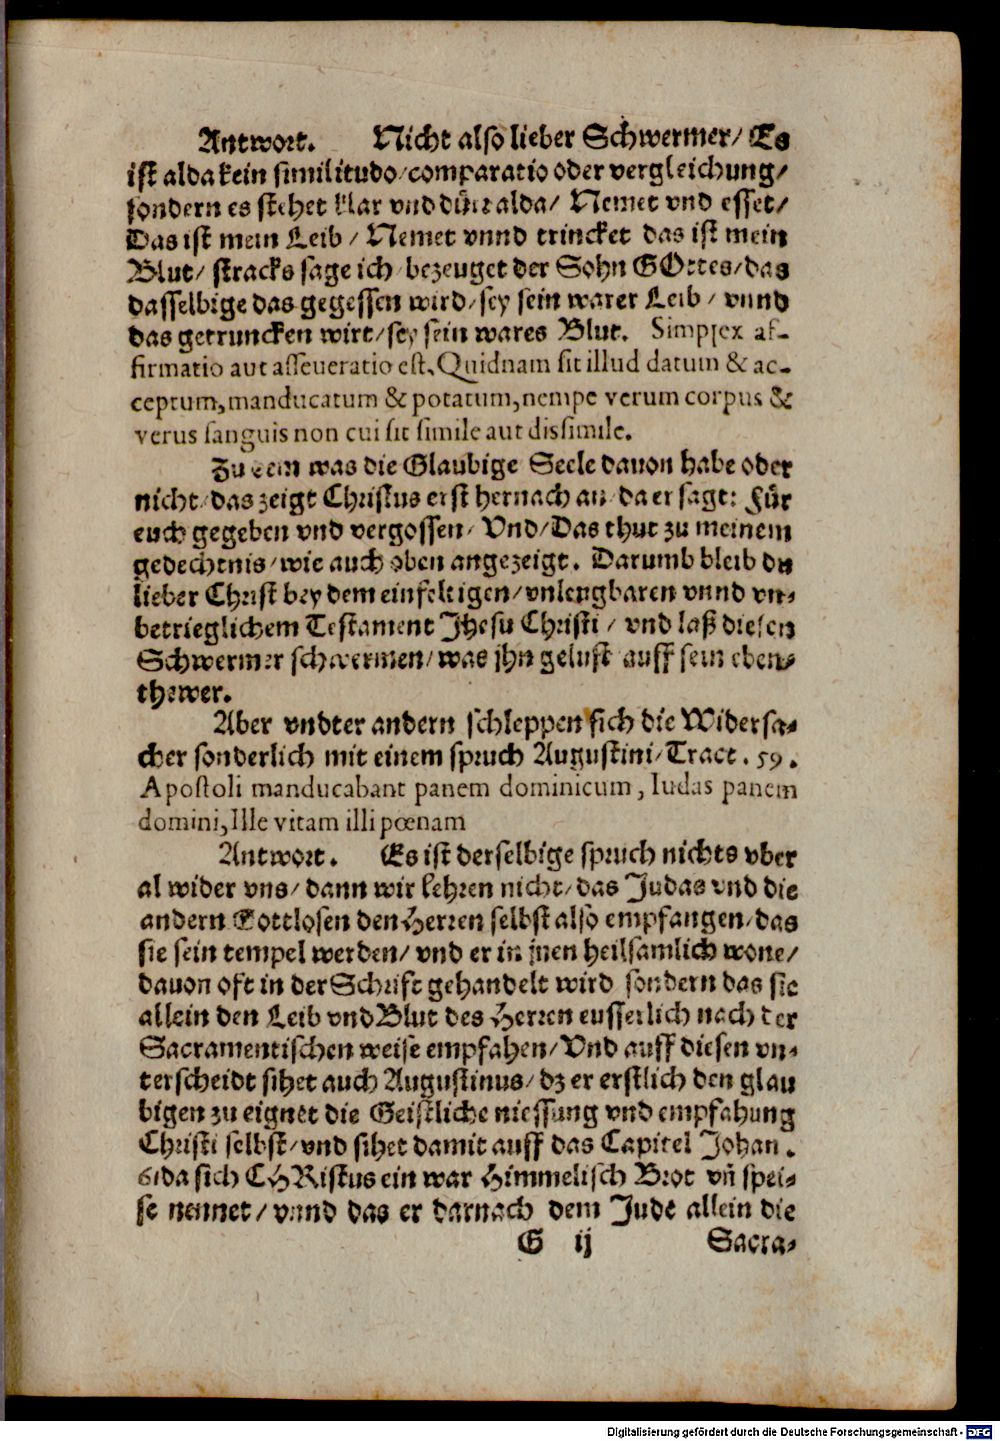 Antwort. Nicht also lieber Schwermer/ Es
ist alda kein similitudo/comparatio oder vergleichung/
sondern es stehet klar vnd dürr alda/ Nemet vnd esset/
Das ist mein Leib / Nemet vnnd trincket das ist mein
Blut/ stracks sage ich/ bezeuget der Sohn GOttes/das
dasselbige das gegessen wird/sey sein warer Leib / vnnd
das getruncken wirt/sey sein wares Blut. Simplex af-
firmatio aut asseueratio est, Quidnam sit illud datum & ac-
ceptum, manducatum & potatum, nempe verum corpus &
verus sanguis non cui sit simile aut dissimile.
Zu dem was die Glaubige Seele dauon habe oder
nicht/das zeigt Christus erst hernach an/da er sagt: Für
euch gegeben vnd vergossen/ Vnd/Das thut zu meinem
gedechtnis/wie auch oben angezeigt. Darumb bleib du
lieber Christ bey dem einfeltigen/vnleugbaren vnnd vn-
betrieglichem Testament Jhesu Christi / vnd laß diesen
Schwermer schwermen/was jhn gelust auff sein eben-
thewer.
Aber vndter andern schleppen sich die Widersa-
cher sonderlich mit einem spruch Augustini/Tract. 59.
Apostoli manducabant panem dominicum, Iudas panem
domini, Ille vitam illi pœnam
Antwort. Es ist derselbige spruch nichts vber
al wider vns/ dann wir lehren nicht/das Judas vnd die
andern Gottlosen den Herren selbst also empfangen/das
sie sein tempel werden/ vnd er in jnen heilsamlich wone/
dauon oft in der Schrift gehandelt wird sondern das sie
allein den Leib vnd Blut des Herren eusserlich nach der
Sacramentischen weise empfahen/Vnd auff diesen vn-
terscheidt sihet auch Augustinus/dz er erstlich den glau
bigen zu eignet die Geistliche niessung vnd empfahung
Christi selbst/vnd sihet damit auff das Capitel Johan.
6/da sich CHRistus ein war Himmelisch Brot vñ spei-
se nennet/ vnnd das er darnach dem Jude allein die
G ij Sacra-
Digitalisierung gefördert durch die Deutsche Forschungsgemeinschaft - DFG